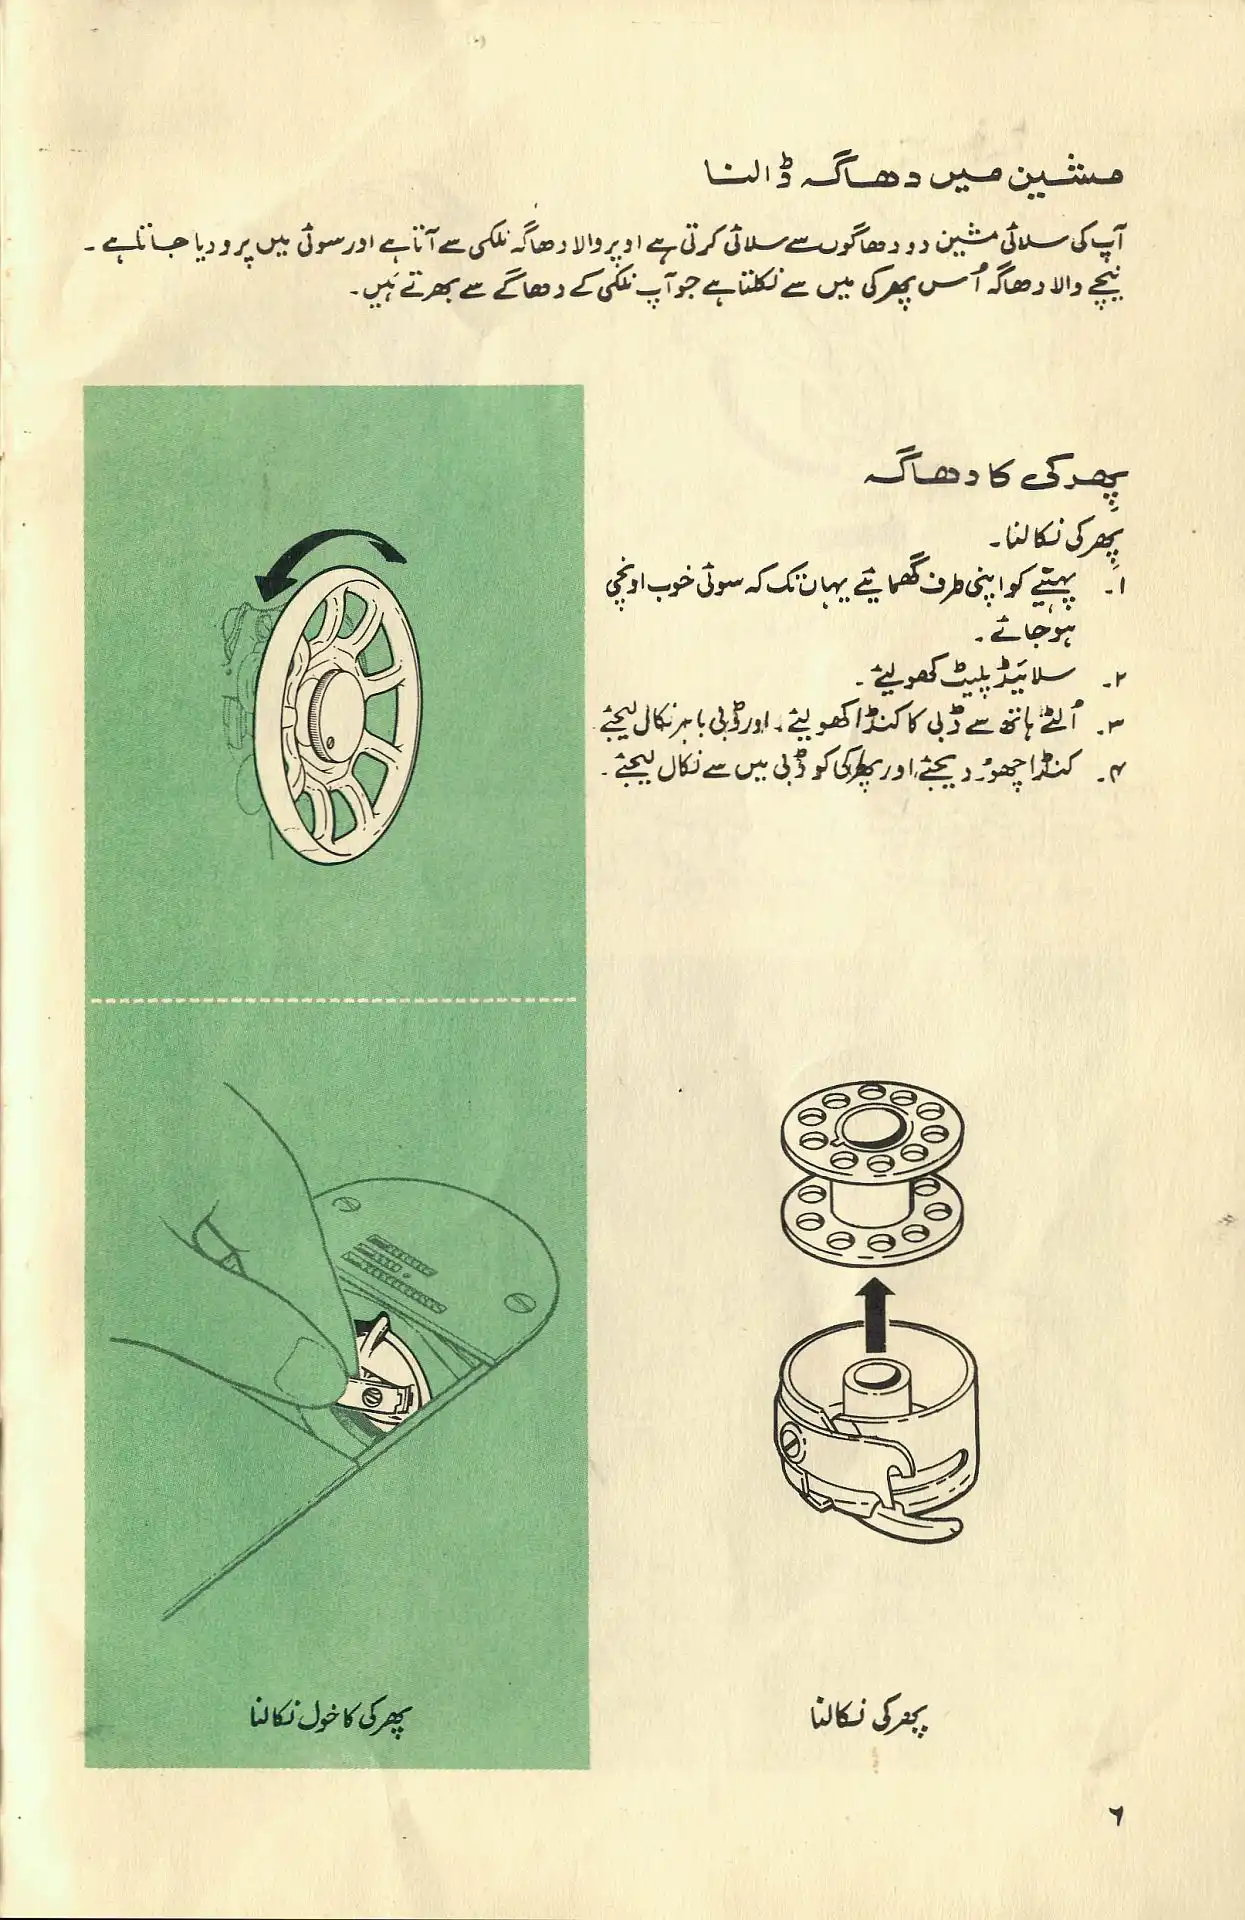 مشین میں دھاگہ ڈالنا
آپ کی سلائی مشین دو دھاگوں سے سلائی کرتی ہے اوپر والا دھاگہ نلکی سے آتا ہے اور سوئی میں پرو دیا جاتا ہے ۔
نیچے والا دھاگہ اُس پھرکی میں سے نکلتا ہے جو آپ نلکی کے دھاگے سے بھرتے ہیں۔
پِھرکی کا دھاگہ
پِھرکی نکالنا۔
۱۔ پہیئے کو اپنی طرف گھمایئے یہاں تک کہ سوئی خوب اونچی
ہو جائے ۔
۲۔ سلائیڈ پلیٹ کھولیئے ۔
۳۔ اُلٹے ہاتھ سے ڈبی کا کنڈا کھولیئے ۔ اور ڈبی باہر نکال لیجئے
۴۔ کنڈا چھوڑ دیجئے اور پھرکی کو ڈبی میں سے نکال لیجئے ۔
پھرکی کا خول نکالنا
پھرکی نکالنا
۶